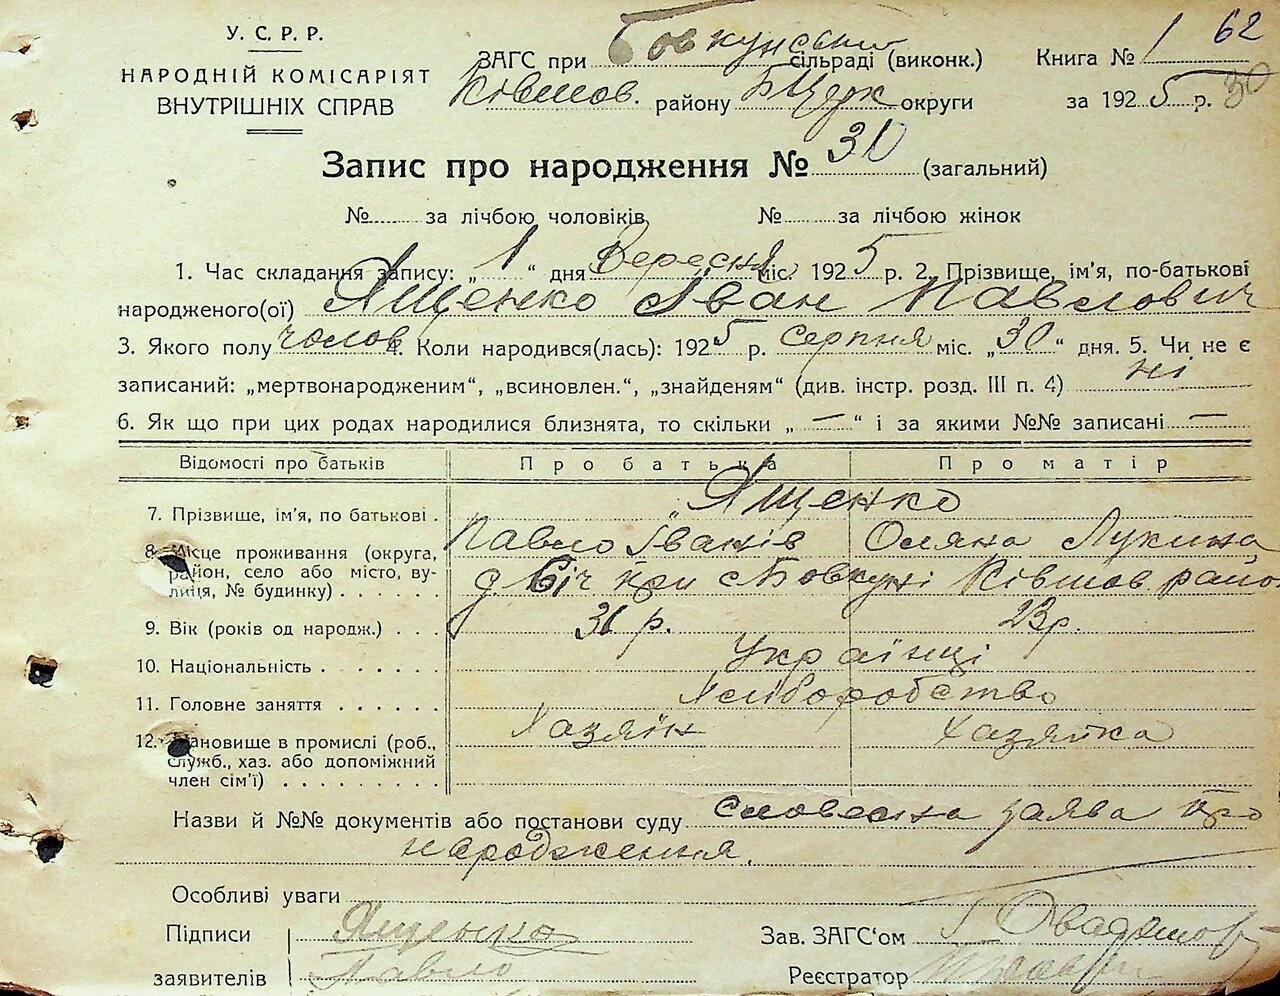 У. С. Р. Р.
НАРОДНІЙ КОМІСАРІЯТ
ВНУТРІШНІХ СПРАВ
ЗАГС при Бовкунській сільраді (виконк.)
Ківшов. району Б Церк округи
Книга № 1 62
за 1925 р. 30
Запис про народження № 30 (загальний)
№ за лічбою чоловіків № за лічбою жінок
1. Час складання запису: „1“ дня Вересня міс. 1925 р. 2. Прізвище, ім’я, по-батькові
народженого(ої) Ященко Іван Павлович
3. Якого полу чолов 4. Коли народився(лась): 1925 р. серпня міс. „30“ дня. 5. Чи не є
записаний: „мертвонародженим“, „всиновлен.“, „знайденям“ (див. інстр. розд. III п. 4) ні
6. Як що при цих родах народилися близнята, то скільки „—“ і за якими №№ записані —
Відомості про батьків Про батька Про матір
7. Прізвище, ім’я, по батькові . Ященко
Павло Іванів Оляна Лукина
8. Місце проживання (округа,
район, село або місто, ву-
лиця, № будинку) . . . . . .
при с Бовкуні Ківшов район
9. Вік (років од народж.) . . . 31 р. 23 р.
10. Національність . . . . . . . Українці
11. Головне заняття . . . . . . Хліборобство
12. Становище в промислі (роб.,
служб., хаз. або допоміжний
член сім’ї) . . . . . . . . .
Хазяїн Хазяйка
Назви й №№ документів або постанови суду словесна заява про
народження.
Особливі уваги
Підписи Ященко Зав. ЗАГС‘ом
заявителів Павло Реєстратор